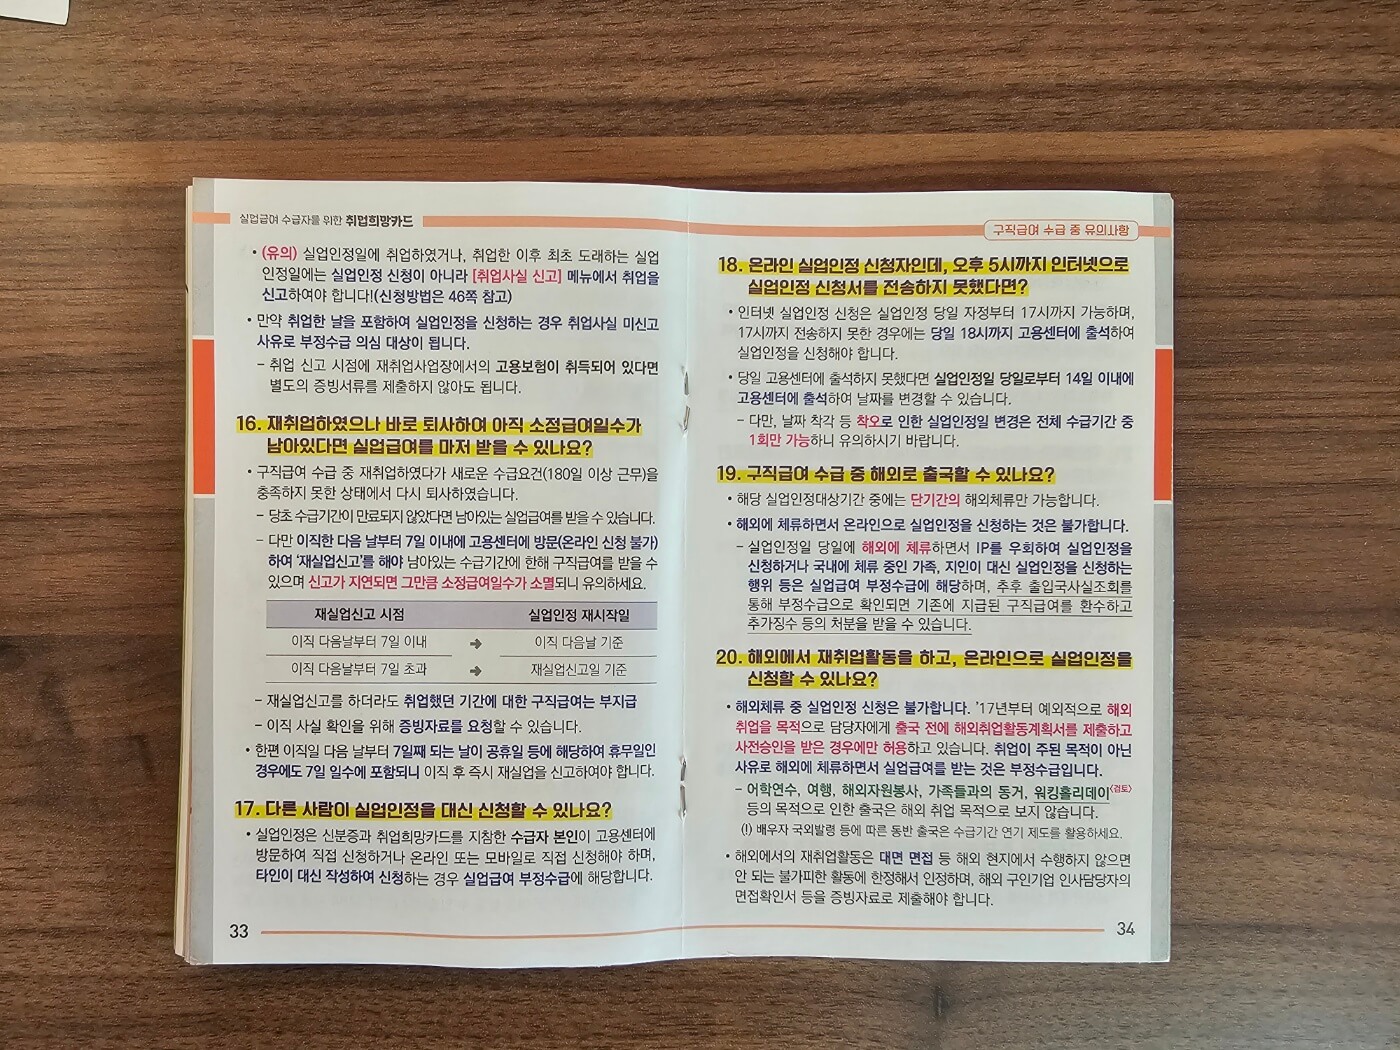 실업급여 수급자를 위한 취업희망카드
• (유의) 실업인정일에 취업하였거나, 취업한 이후 최초 도래하는 실업
인정일에는 실업인정 신청이 아니라 [취업사실 신고] 메뉴에서 취업을
신고하여야 합니다!(신청방법은 46쪽 참고)
• 만약 취업한 날을 포함하여 실업인정을 신청하는 경우 취업사실 미신고
사유로 부정수급 의심 대상이 됩니다.
– 취업 신고 시점에 재취업사업장에서의 고용보험이 취득되어 있다면
별도의 증빙서류를 제출하지 않아도 됩니다.
16. 재취업하였으나 바로 퇴사하여 아직 소정급여일수가
남아있다면 실업급여를 마저 받을 수 있나요?
• 구직급여 수급 중 재취업하였다가 새로운 수급요건(180일 이상 근무)을
충족하지 못한 상태에서 다시 퇴사하였습니다.
– 당초 수급기간이 만료되지 않았다면 남아있는 실업급여를 받을 수 있습니다.
– 다만 이직한 다음 날부터 7일 이내에 고용센터에 방문(온라인 신청 불가)
하여 '재실업신고'를 해야 남아있는 수급기간에 한해 구직급여를 받을 수
있으며 신고가 지연되면 그만큼 소정급여일수가 소멸되니 유의하세요.
재실업신고 시점 실업인정 재시작일
이직 다음날부터 7일 이내 ➔ 이직 다음날 기준
이직 다음날부터 7일 초과 ➔ 재실업신고일 기준
– 재실업신고를 하더라도 취업했던 기간에 대한 구직급여는 부지급
– 이직 사실 확인을 위해 증빙자료를 요청할 수 있습니다.
• 한편 이직일 다음 날부터 7일째 되는 날이 공휴일 등에 해당하여 휴무일인
경우에도 7일 일수에 포함되니 이직 후 즉시 재실업을 신고하여야 합니다.
17. 다른 사람이 실업인정을 대신 신청할 수 있나요?
• 실업인정은 신분증과 취업희망카드를 지참한 수급자 본인이 고용센터에
방문하여 직접 신청하거나 온라인 또는 모바일로 직접 신청해야 하며,
타인이 대신 작성하여 신청하는 경우 실업급여 부정수급에 해당합니다.
33
구직급여 수급 중 유의사항
18. 온라인 실업인정 신청자인데, 오후 5시까지 인터넷으로
실업인정 신청서를 전송하지 못했다면?
• 인터넷 실업인정 신청은 실업인정 당일 자정부터 17시까지 가능하며,
17시까지 전송하지 못한 경우에는 당일 18시까지 고용센터에 출석하여
실업인정을 신청해야 합니다.
• 당일 고용센터에 출석하지 못했다면 실업인정일 당일로부터 14일 이내에
고용센터에 출석하여 날짜를 변경할 수 있습니다.
– 다만, 날짜 착각 등 착오로 인한 실업인정일 변경은 전체 수급기간 중
1회만 가능하니 유의하시기 바랍니다.
19. 구직급여 수급 중 해외로 출국할 수 있나요?
• 해당 실업인정대상기간 중에는 단기간의 해외체류만 가능합니다.
• 해외에 체류하면서 온라인으로 실업인정을 신청하는 것은 불가합니다.
– 실업인정일 당일에 해외에 체류하면서 IP를 우회하여 실업인정을
신청하거나 국내에 체류 중인 가족, 지인이 대신 실업인정을 신청하는
행위 등은 실업급여 부정수급에 해당하며, 추후 출입국사실조회를
통해 부정수급으로 확인되면 기존에 지급된 구직급여를 환수하고
추가징수 등의 처분을 받을 수 있습니다.
20. 해외에서 재취업활동을 하고, 온라인으로 실업인정을
신청할 수 있나요?
• 해외체류 중 실업인정 신청은 불가합니다. '17년부터 예외적으로 해외
취업을 목적으로 담당자에게 출국 전에 해외취업활동계획서를 제출하고
사전승인을 받은 경우에만 허용하고 있습니다. 취업이 주된 목적이 아닌
사유로 해외에 체류하면서 실업급여를 받는 것은 부정수급입니다.
– 어학연수, 여행, 해외자원봉사, 가족들과의 동거, 워킹홀리데이<검토>
등의 목적으로 인한 출국은 해외 취업 목적으로 보지 않습니다.
(!) 배우자 국외발령 등에 따른 동반 출국은 수급기간 연기 제도를 활용하세요.
• 해외에서의 재취업활동은 대면 면접 등 해외 현지에서 수행하지 않으면
안 되는 불가피한 활동에 한정해서 인정하며, 해외 구인기업 인사담당자의
면접확인서 등을 증빙자료로 제출해야 합니다.
34